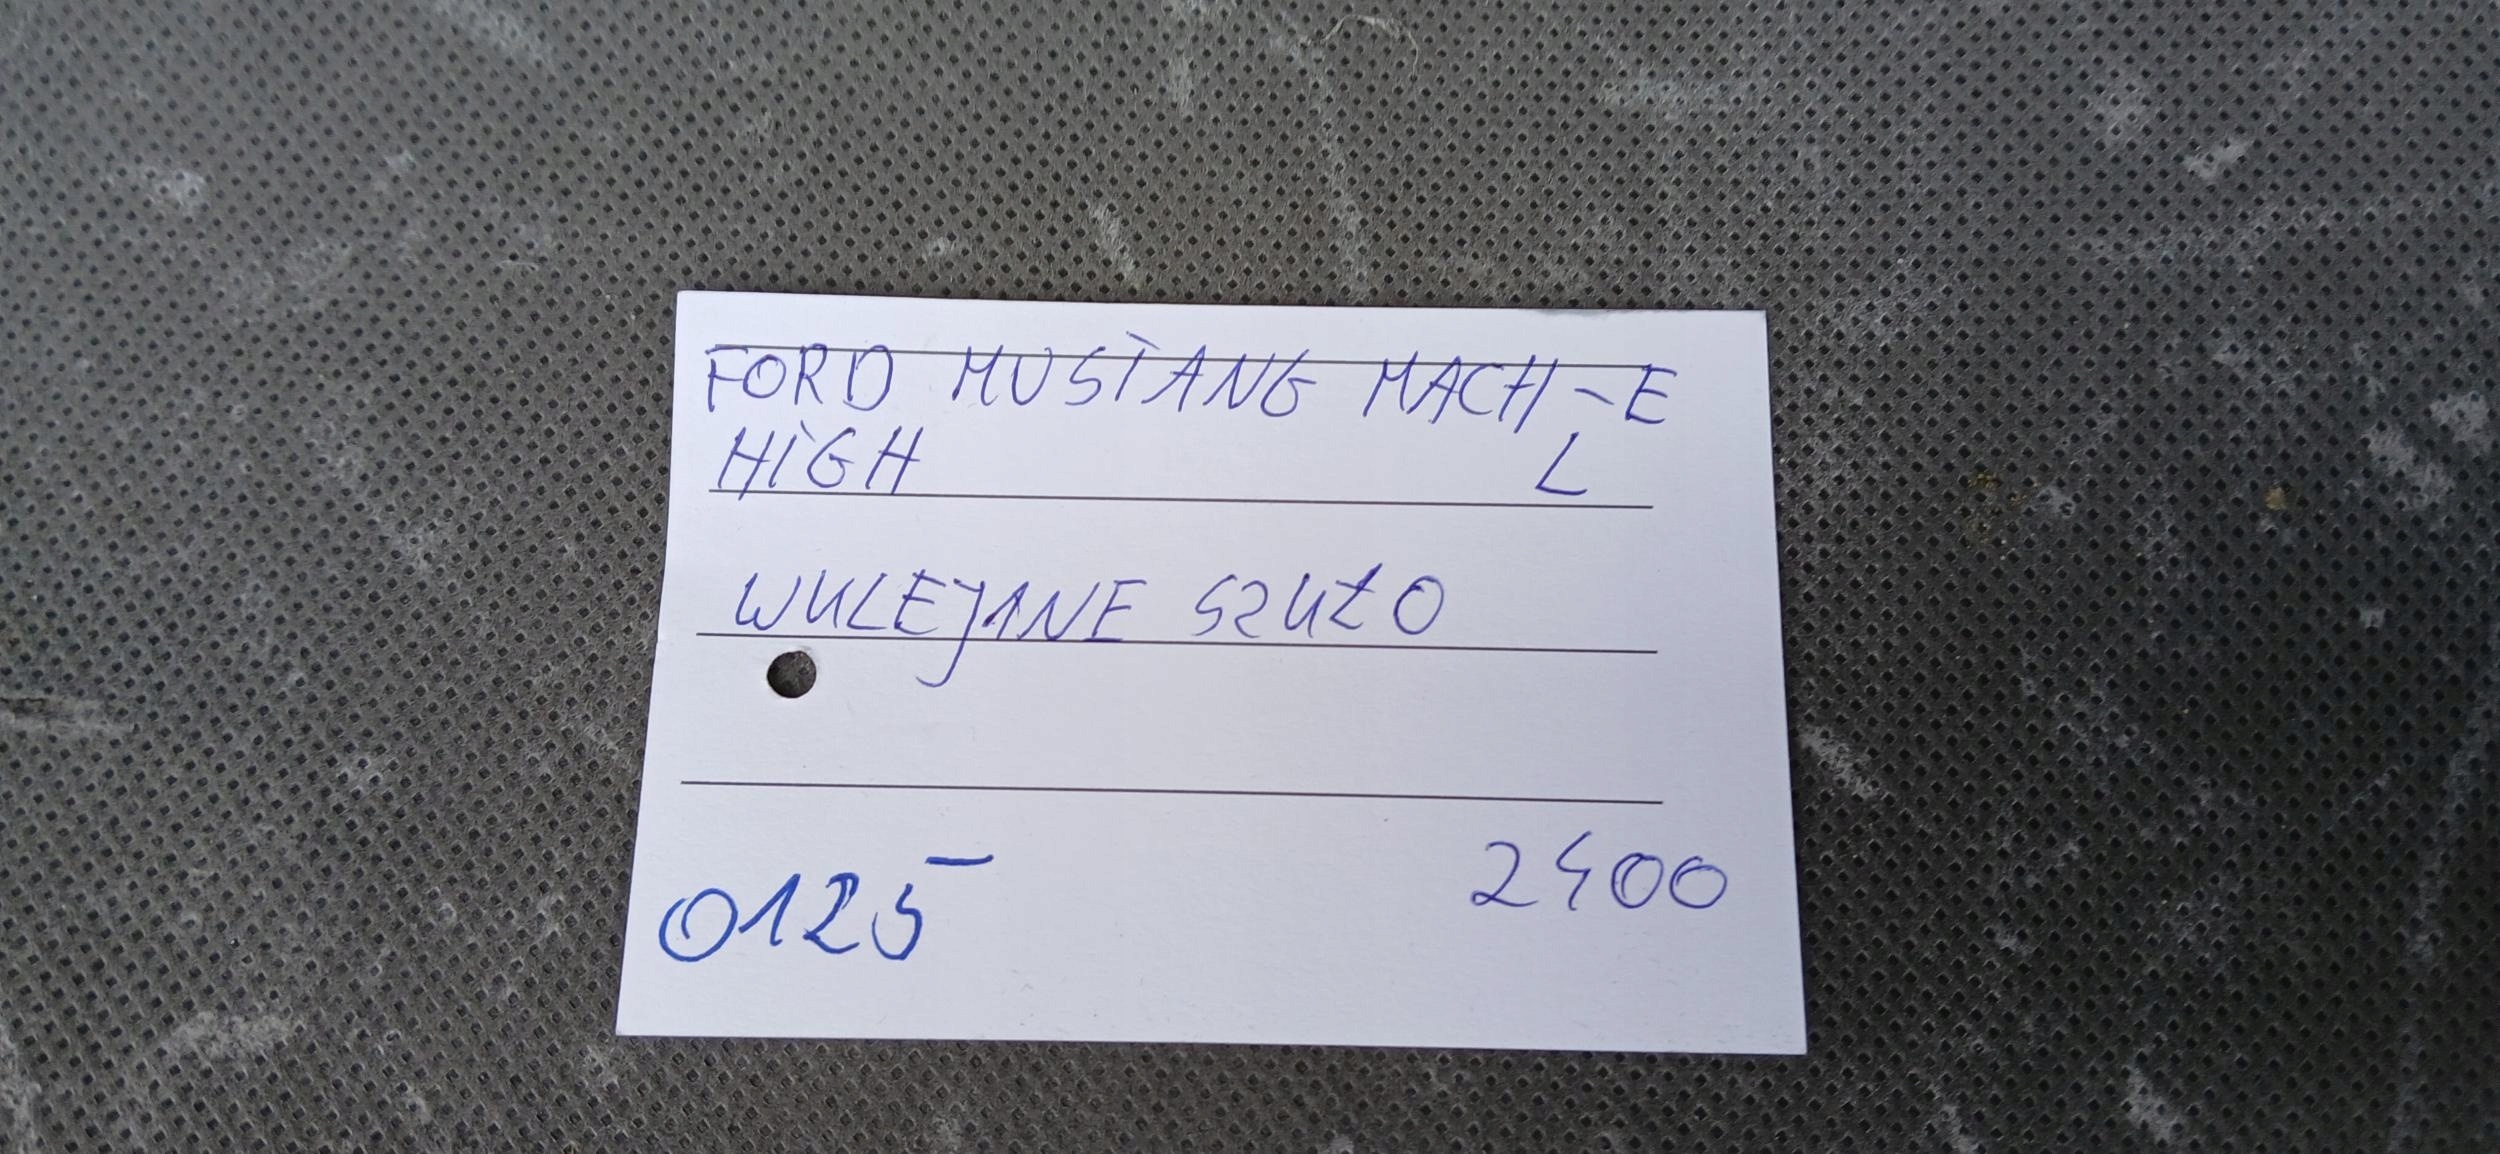 FORD MUSTANG MACH-E
HiGH L
WULEJANE SZUŁO
0125 2400